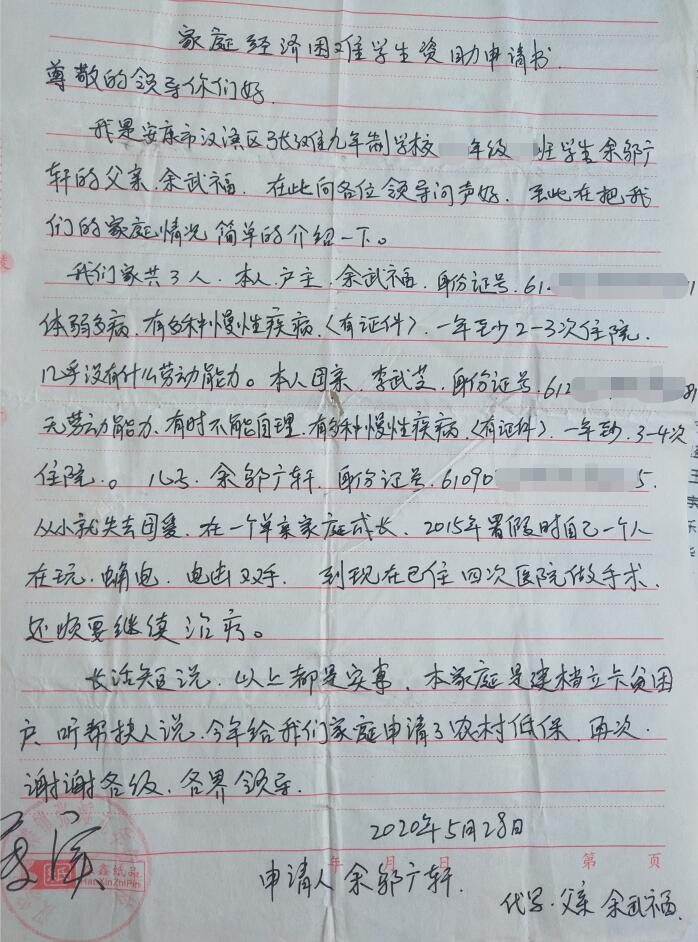 家庭经济困难学生资助申请书.
尊敬的领导你们好.
我是安康市汉滨区张滩九年制学校 年级 班学生余邹广
轩的父亲.余武福.在此向各位领导问声好.至此在把我
们的家庭情况简单的介绍一下。
我们家共3人.本人.户主.余武福.身份证号.61. 1
体弱多病.有多种慢性疾病.(有证件).一年至少2-3次住院.
几乎没有什么劳动能力。本人母亲.李武芝.身份证号.612
无劳动能力.有时不能自理.有多种慢性疾病.(有证件).一年至少.3-4次
住院.。儿子.余邹广轩.身份证号.61090 5.
从小就失去母爱.在一个单亲家庭成长.2015年暑假时自己一个人
在玩.触电.电击双手.到现在已住四次医院做手术.
还须要继续治疗。
长话短说.以上都是实事.本家庭是建档立卡贫困
户.听帮扶人说.今年给我们家庭申请了农村低保.再次.
谢谢各级.各界领导.
2020年5月28日
年 月 日 第 页
鑫纸品
HanXinZhiPin
申请人 余邹广轩.
代写.父亲 余武福.